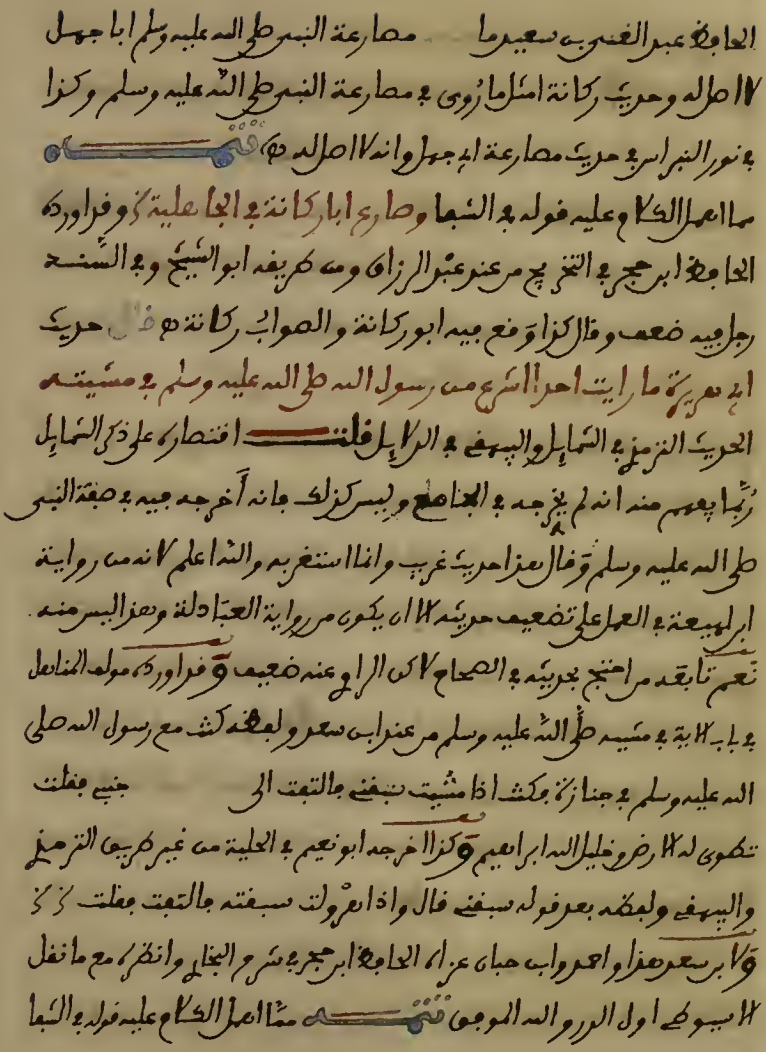 الحافظ عبد الغني بن سعيد ما مصارعة النبي صلى الله عليه وسلم ابا جهل
لا اصل له وحديث ركانة امثل ما رُوي في مصارعة النبي صلى الله عليه وسلم وكذا
في نور النبراس في حديث مصارعة ابي جهل وانه لا اصل له تتمة
مما اهمل الكلام عليه قوله في الشفا وصارع ابا ركانة في الجاهلية وقد اورده
الحافظ ابن حجر في التخريج من عند عبد الرزاق ومن طريقه ابو الشيخ وفي السند
رجل فيه ضعف وقال كذا وقع فيه ابو ركانة والصواب ركانة قال حديث
ابي هريرة ما رايت احدا اسرع من رسول الله صلى الله عليه وسلم في مشيته
الحديث الترمذي في الشمايل والبيهقي في الدلايل قلت اقتصاره على ذكر الشمايل
رُبَّما يفهم منه انه لم يخرجه في الجامع وليس كذلك فانه أخرجه فيه في صفة النبي
صلى الله عليه وسلم وقال هذا حديث غريب وانما استغربه والله اعلم لانه من رواية
ابن لهيعة والعمل على تضعيف حديثه الا ان يكون من رواية العبادلة وهذا ليس منه
نعم تابعه من احتج بحديثه في الصحاح لاكن الراوي عنه ضعيف وقد اورده مولف المناهل
في باب الاية في مشيه صلى الله عليه وسلم من عند ابن سعد ولفظه كنت مع رسول الله صلى
الله عليه وسلم في جنازة فكنت اذا مشيت سبقني فالتفت الى جنبي فقلت
تطوى له الارض وخليل الله ابراهيم وكذا اخرجه ابو نعيم في الحلية من غير طريق الترمذي
والبيهقي ولفظه بعد قوله سبقني قال واذا هرولت سبقته فالتفت فقلت
ولابن سعد هذا واحمد وابن حبان عزاه الحافظ ابن حجر في شرح البخاري وانظره مع ما نقل
الاسيوطي اول الدرر والله الموفق تتمة ممّا اهمل الكلام عليه قوله في الشفا